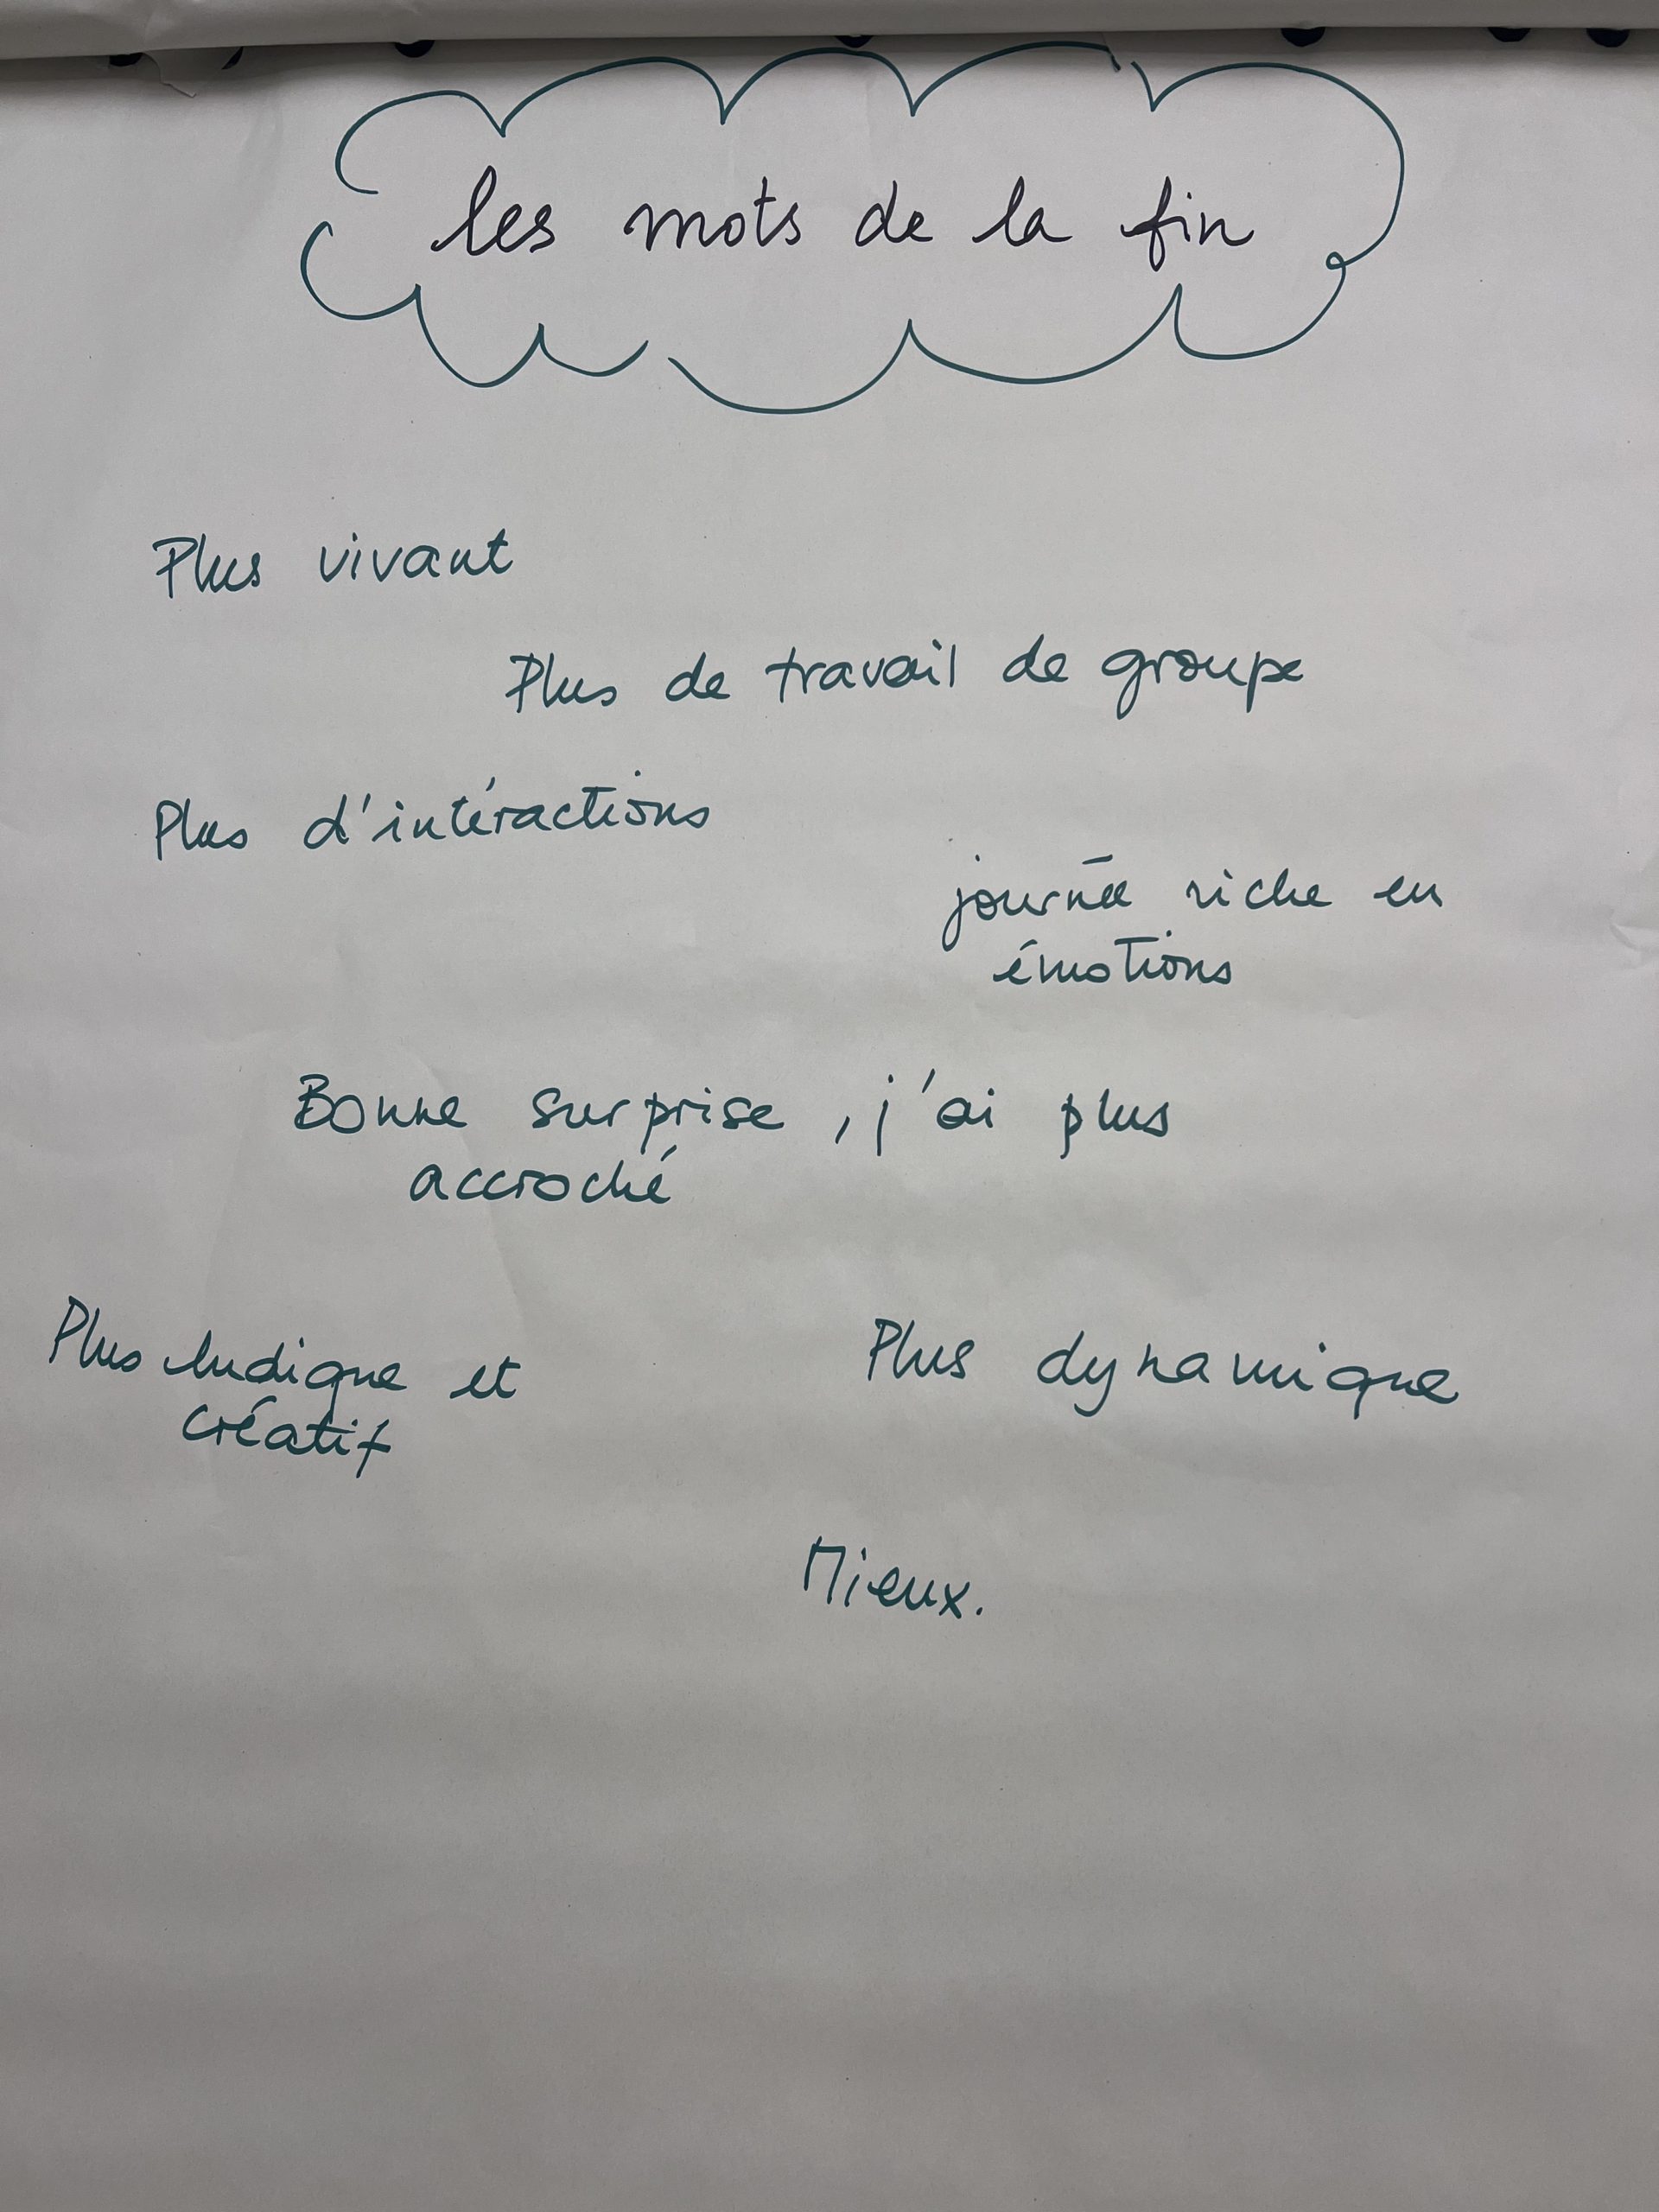 les mots de la fin
Plus vivant
Plus de travail de groupe
Plus d'intéractions
journée riche en
émotions
Bonne surprise, j'ai plus
accroché
Plus ludique et
créatif
Plus dynamique
Mieux.